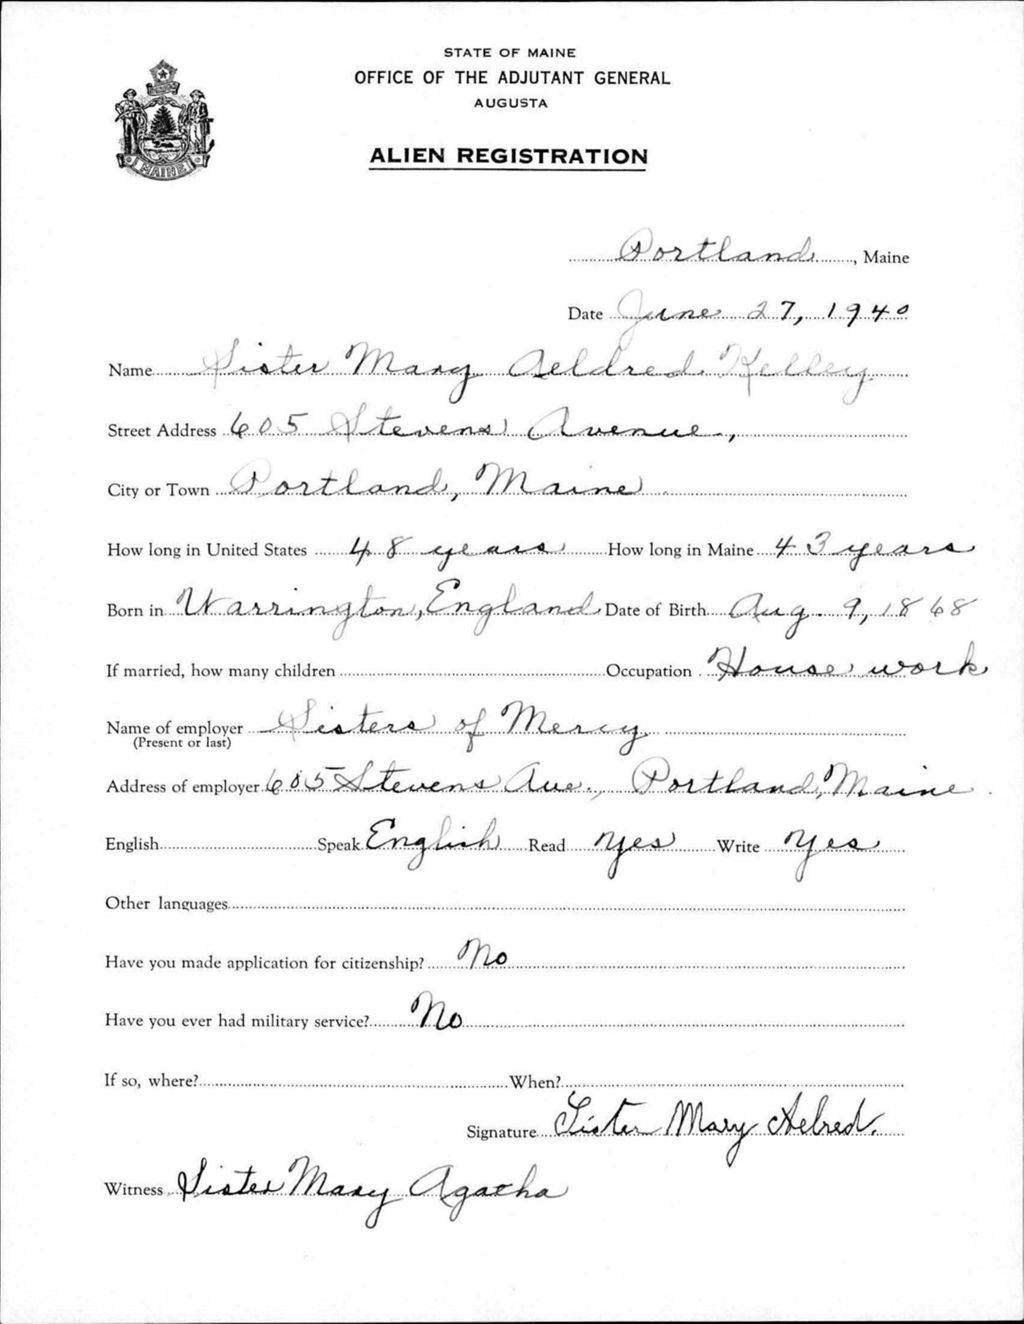 STATE OF MAINE
OFFICE OF THE ADJUTANT GENERAL
AUGUSTA
ALIEN REGISTRATION
MAINE
Portland, Maine
Date June 27, 1940
Name Sister Mary Aeldred Kelley
Street Address 605 Stevens Avenue,
City or Town Portland, Maine
How long in United States 48 years How long in Maine 43 years
Born in Warrington, England Date of Birth Aug. 9, 1868
If married, how many children Occupation House work
Name of employer Sisters of Mercy
(Present or last)
Address of employer 605 Stevens Ave., Portland, Maine
English Speak English Read Yes Write Yes
Other languages
Have you made application for citizenship? No
Have you ever had military service? No
If so, where? When?
Signature Sister Mary Aelred.
Witness Sister Mary Agatha